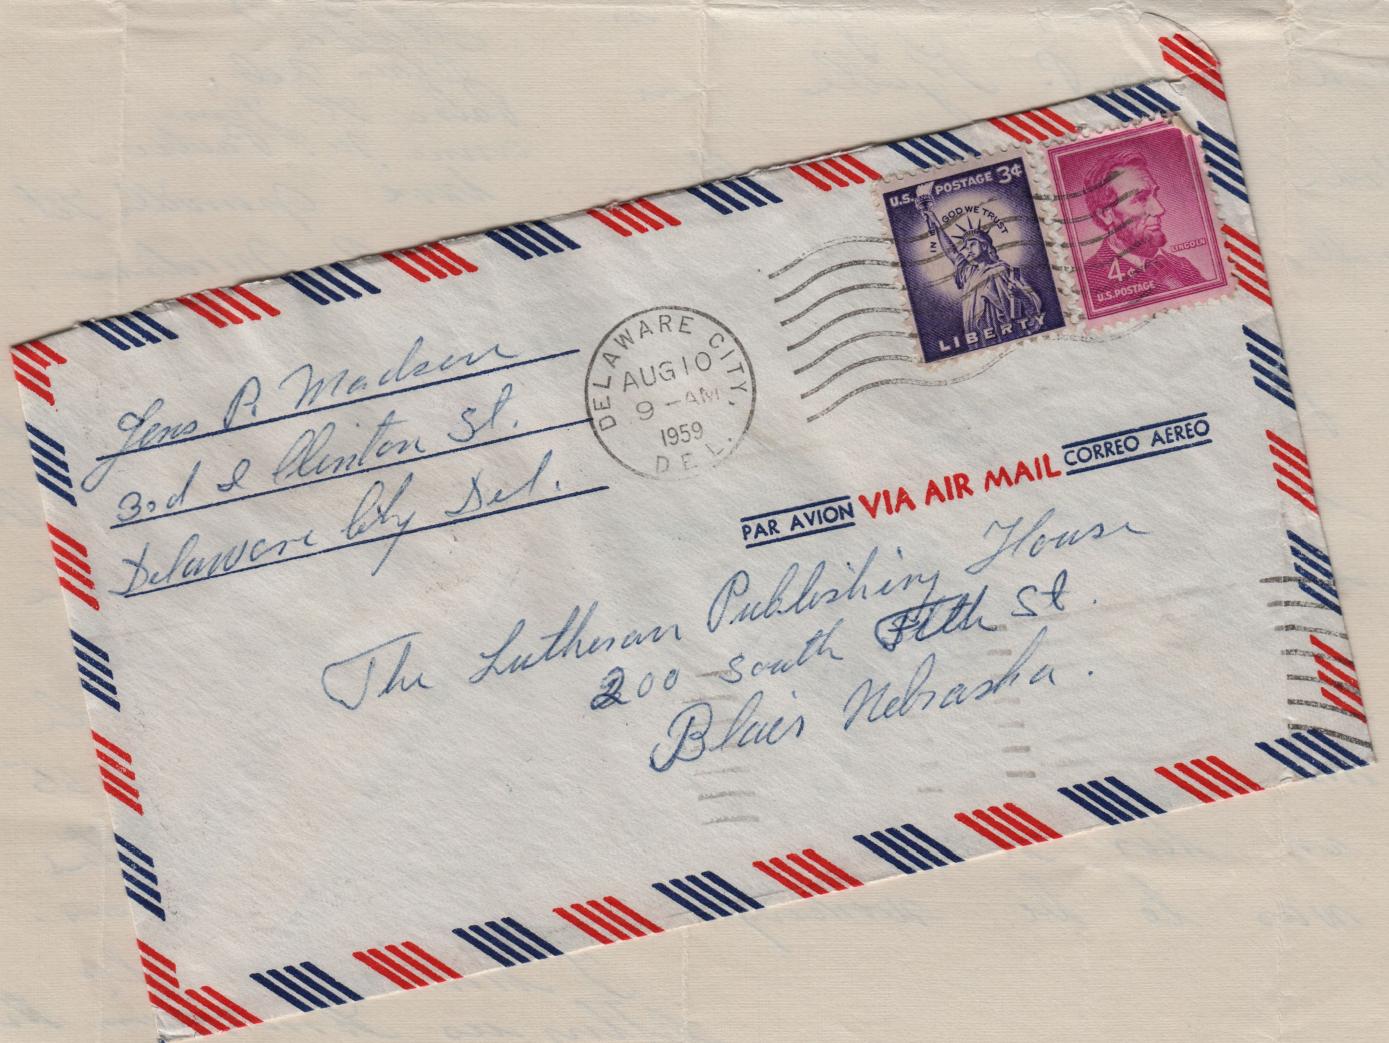 U.S. POSTAGE 3¢
IN GOD WE TRUST
LIBERTY
LINCOLN
4¢
U.S. POSTAGE
DELAWARE CITY,
AUG 10
9 - AM
1959
DEL.
Jens P. Madsen
3rd & Clinton St.
Delaware City Del.
PAR AVION VIA AIR MAIL CORREO AEREO
The Lutheran Publishing House
200 South Fifth St.
Blair Nebraska.